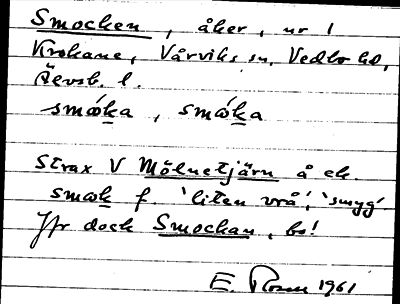 Smocken, åker, nr 1
Krokane, Vårviks sn, Vedbo hd,
Älvsb. l.
smὼka, smὼka
Strax V Mölnetjärn å ek.
smωk f. 'liten vrå', 'smyg'.
Jfr dock Smockan, bs!
E. Rosen 1961